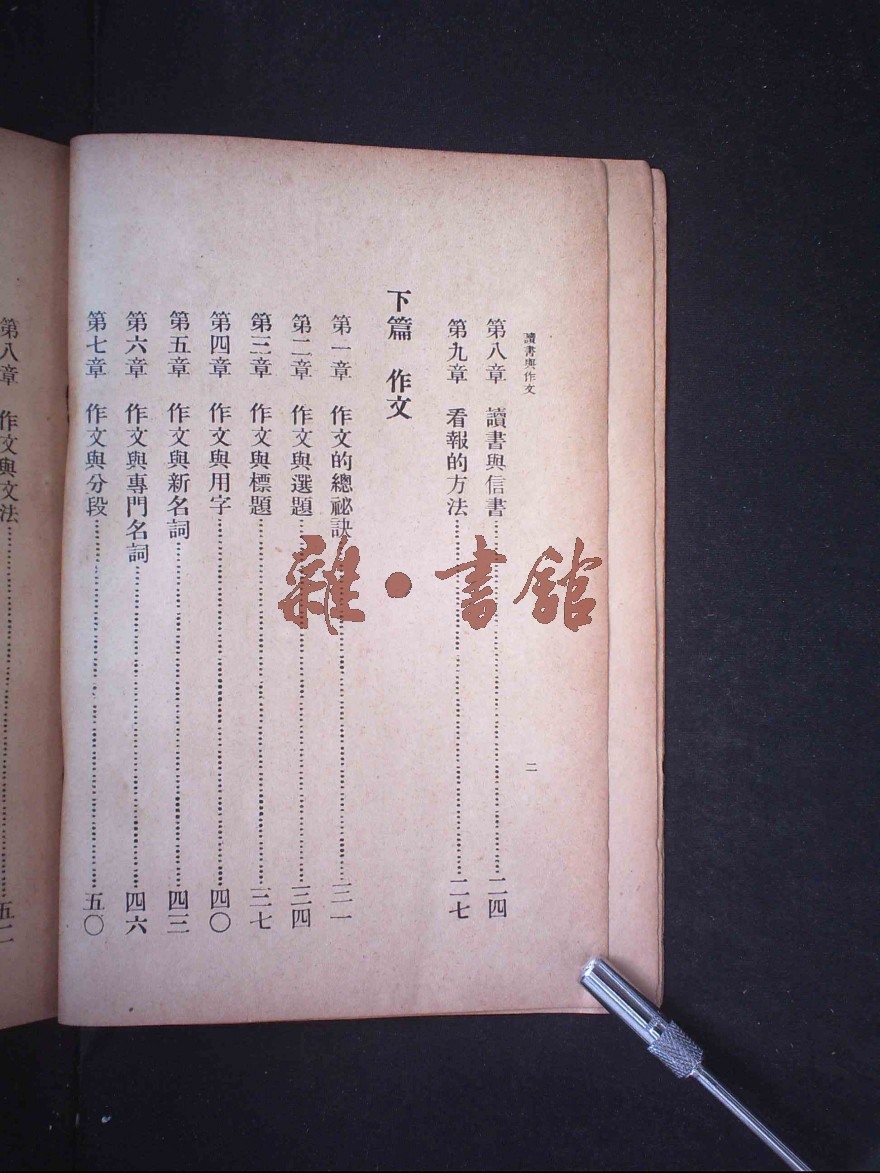 讀書與作文
二
第八章 讀書與信書……二四
第九章 看報的方法……二七
下篇 作文
第一章 作文的總祕訣……三一
第二章 作文與選題……三四
第三章 作文與標題……三七
第四章 作文與用字……四〇
第五章 作文與新名詞……四三
第六章 作文與專門名詞……四六
第七章 作文與分段……五〇
第八章 作文與文法……五二
雜·書館